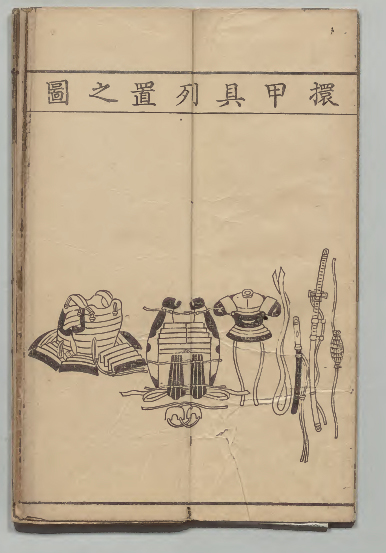 擐甲具列置之圖